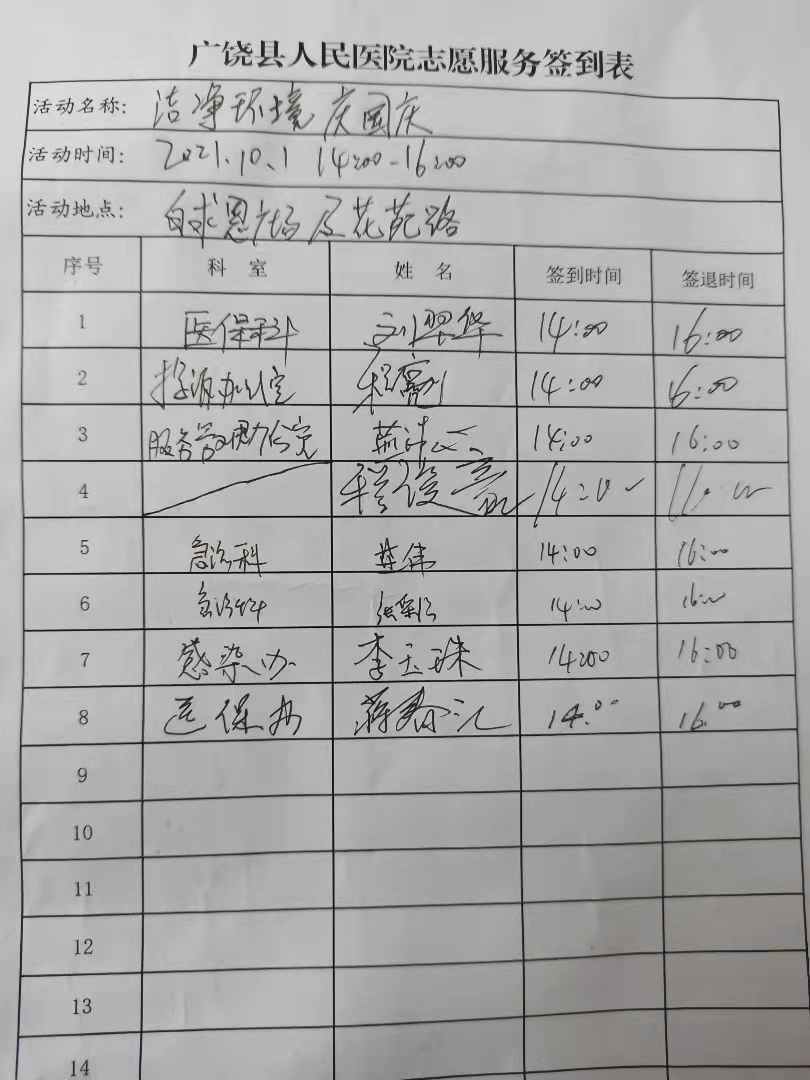 广饶县人民医院志愿服务签到表
活动名称: 洁净环境 庆国庆
活动时间: 2021.10.1 14:00-16:00
活动地点: 白求恩广场及花苑路
序号 科室 姓名 签到时间 签退时间
1 医保科 刘翠华 14:00 16:00
2 14:00 16:00
3 服务 14:00 16:00
4
5 急诊科 伟 14:00 16:00
6 急诊科 14:00 16:00
7 感染办 李玉珠 14:00 16:00
8 医保办 蒋春汇 14:00 16:00
9
10
11
12
13
14